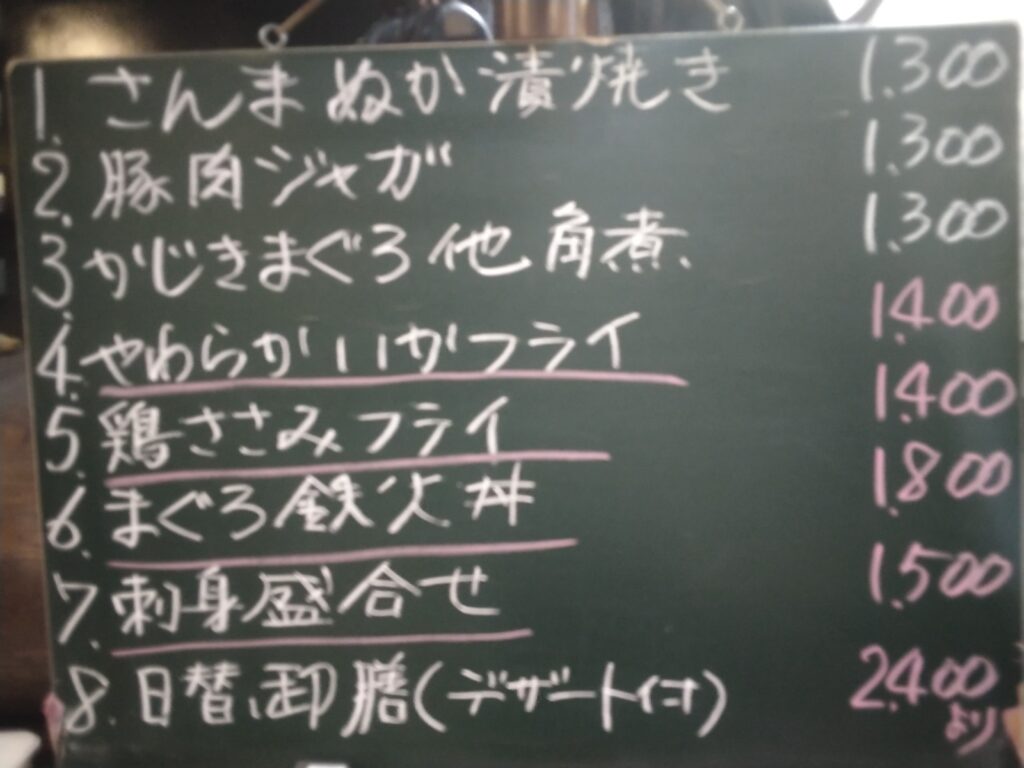 1. さんまぬか漬焼き 1.300
2. 豚肉ジャガ 1.300
3 かじきまぐろ他角煮 1.300
4. やわらかいいかフライ 1.400
5. 鶏ささみフライ 1.400
6. まぐろ鉄火丼 1.800
7. 刺身盛合せ 1.500
8. 日替、御膳(デザート付) 2.400より